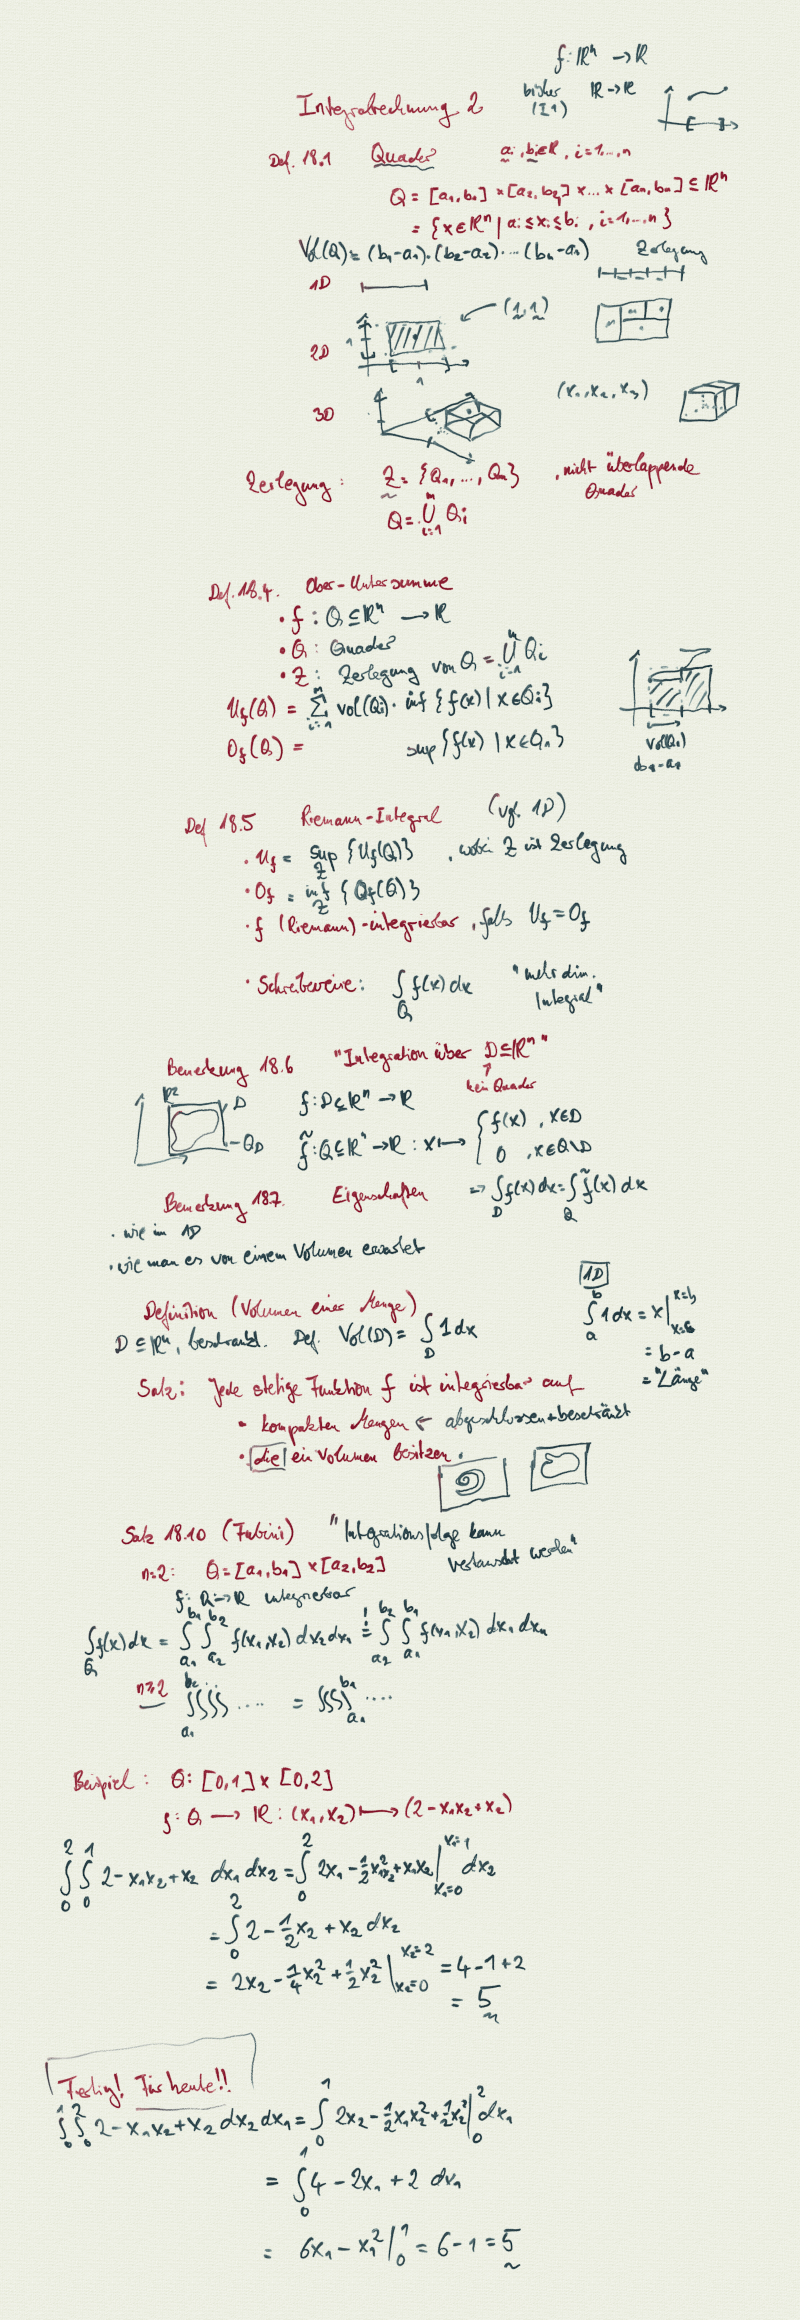 f: ℝⁿ → ℝ
Integralrechnung 2
bisher ℝ → ℝ
(I1)
Def. 18.1 Quader aᵢ, bᵢ ∈ ℝ, i=1,...,n
Q = [a₁,b₁] × [a₂,b₂] × ... × [aₙ,bₙ] ⊆ ℝⁿ
= {x ∈ ℝⁿ | aᵢ ≤ xᵢ ≤ bᵢ, i=1,...,n}
Vol(Q) = (b₁-a₁)·(b₂-a₂)· ... (bₙ-aₙ) Zerlegung
1D
2D 1 1 (1,1)
3D (x₁,x₂,x₃)
Zerlegung: Z = {Q₁, ..., Qₘ}, nicht überlappende
Quader
Q = ⋃ᵢ₌₁ᵐ Qᵢ
Def. 18.4. Ober-Untersumme
• f: Q ⊆ ℝⁿ → ℝ
• Q: Quader
• Z: Zerlegung von Q = ⋃ᵢ₌₁ᵐ Qᵢ
U_f(Q) = ∑ᵢ₌₁ᵐ vol(Qᵢ) · inf {f(x) | x ∈ Qᵢ}
O_f(Q) = sup {f(x) | x ∈ Q₁}
vol(Q₁)
b₁-a₁
Def 18.5 Riemann-Integral (vgl. 1D)
• U_f = sup_Z {U_f(Q)}, wobei Z ist Zerlegung
• O_f = inf_Z {O_f(Q)}
• f (Riemann)-integrierbar, falls U_f = O_f
• Schreibweise: ∫_Q f(x) dx "mehrdim.
Integral"
Bemerkung 18.6 "Integration über D ⊆ ℝⁿ"
↑
kein Quader
ℝ² D Q_D
f: D ⊆ ℝⁿ → ℝ
f̃: Q ⊆ ℝⁿ → ℝ: x ↦ { f(x), x ∈ D
0, x ∈ Q\D
⇒ ∫_D f(x) dx = ∫_Q f̃(x) dx
Bemerkung 18.7. Eigenschaften
• wie im 1D
• wie man es von einem Volumen erwartet
Definition (Volumen einer Menge)
D ⊆ ℝⁿ, beschränkt. Def. Vol(D) = ∫_D 1 dx
1D
∫ₐᵇ 1 dx = x |ₓ₌ₐˣ⁼ᵇ
= b - a
= "Länge"
Satz: Jede stetige Funktion f ist integrierbar auf
• kompakten Mengen ← abgeschlossen + beschränkt
• die ein Volumen besitzen.
Satz 18.10 (Fubini) "Integrationsfolge kann
vertauscht werden"
n=2: Q = [a₁,b₁] × [a₂,b₂]
f: Q → ℝ integrierbar
∫_Q f(x) dx = ∫_{a₁}^{b₁} ∫_{a₂}^{b₂} f(x₁,x₂) dx₂ dx₁ =! ∫_{a₂}^{b₂} ∫_{a₁}^{b₁} f(x₁,x₂) dx₁ dx₂
n≥2 ∫∫∫∫ .... = ∫∫∫∫ ....
Beispiel: Q: [0,1] × [0,2]
f: Q → ℝ: (x₁,x₂) ↦ (2-x₁x₂+x₂)
∫₀² ∫₀¹ 2-x₁x₂+x₂ dx₁ dx₂ = ∫₀² 2x₁ - ½x₁²x₂ + x₁x₂ |_{x₁=0}^{x₁=1} dx₂
= ∫₀² 2 - ½x₂ + x₂ dx₂
= 2x₂ - ¼x₂² + ½x₂² |_{x₂=0}^{x₂=2} = 4-1+2
= 5
Fertig! Für heute!!
∫₀¹ ∫₀² 2-x₁x₂+x₂ dx₂ dx₁ = ∫₀¹ 2x₂ - ½x₁x₂² + ½x₂² |₀² dx₁
= ∫₀¹ 4 - 2x₁ + 2 dx₁
= 6x₁ - x₁² |₀¹ = 6-1 = 5